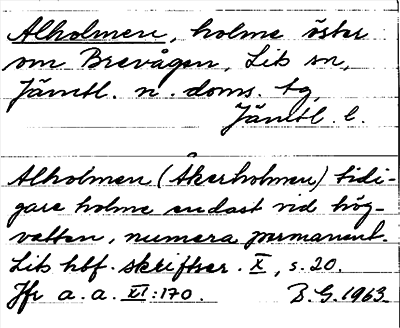 Alholmen, holme öster
om Brevågen, Lits sn,
Jämtl. n. doms. tg,
Jämtl. l.
Alholmen (Åkerholmen) tidi-
gare holme endast vid hög-
vatten, numera permanent.
Lits hbf. skriftser. X, s. 20.
Jfr a. a. XI:170. B. G. 1963.